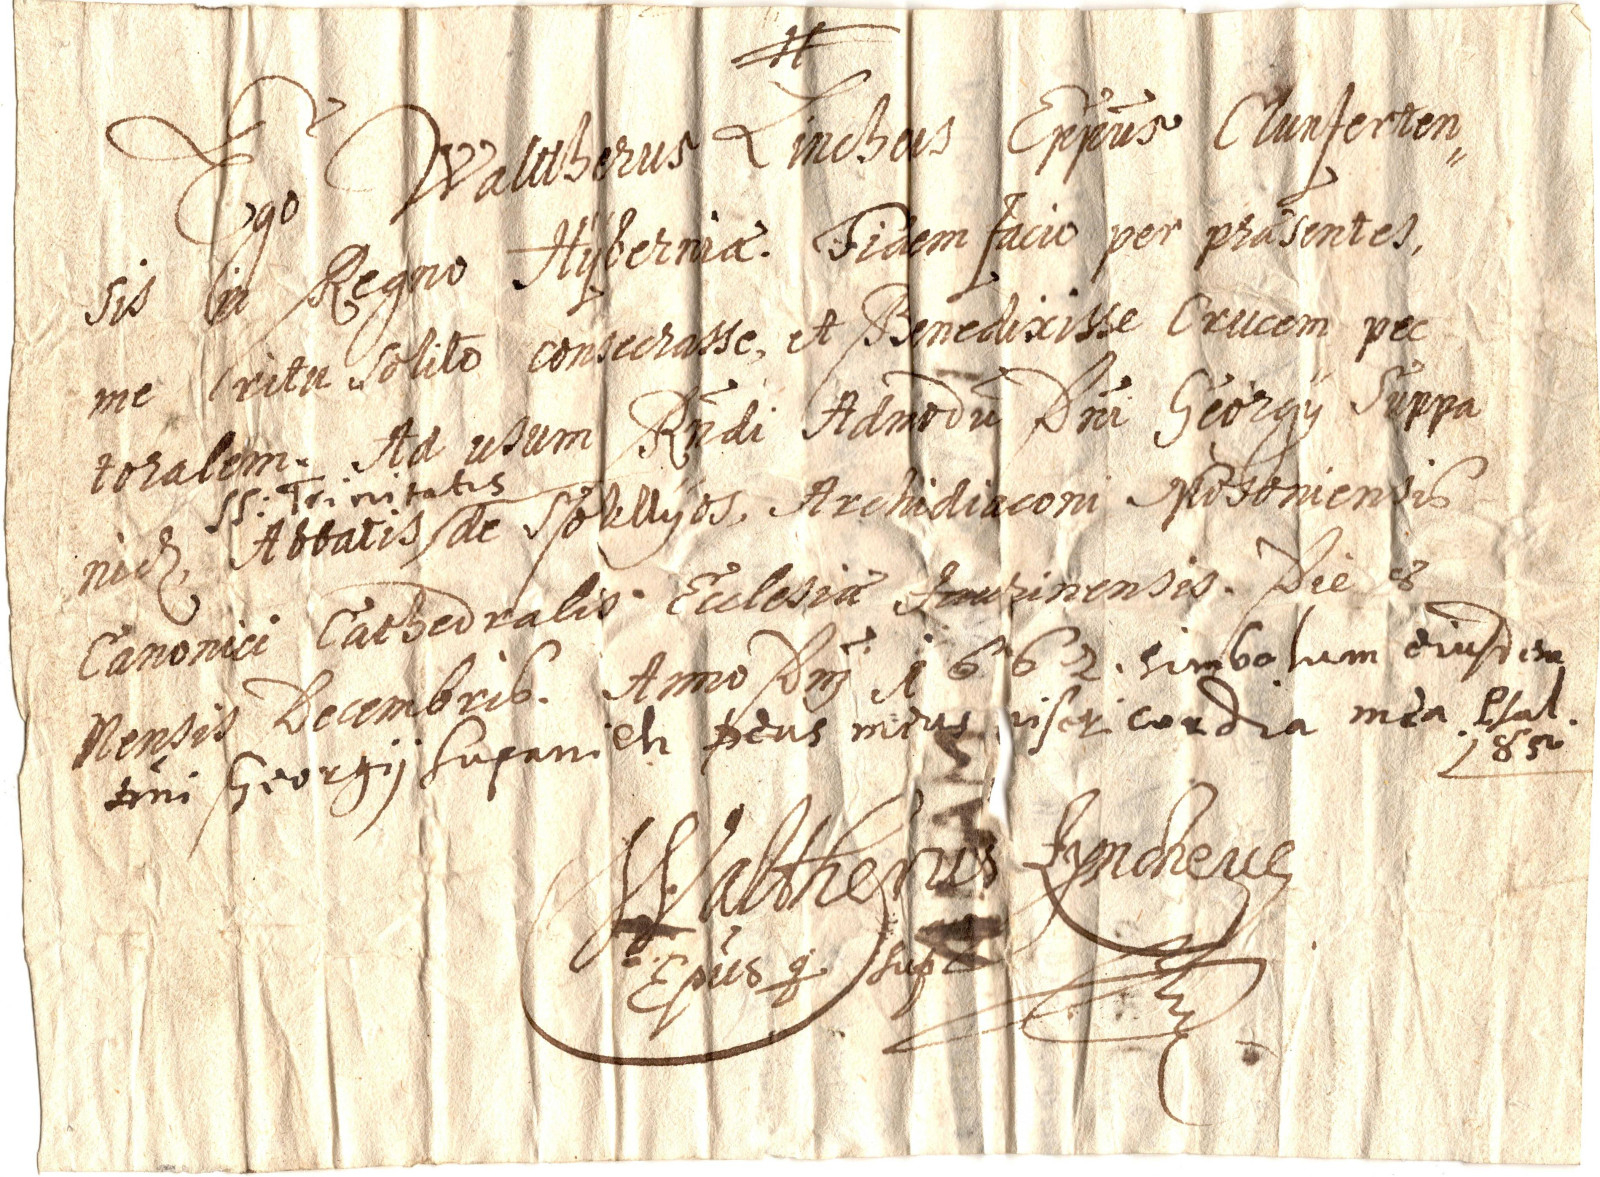 Ego Waltherus Lincheus Eppũs Clunferten„
sis in Regno Hÿberniæ. Fidem facio per præsentes,
me ritu solito consecrasse, et Benedixisse Crucem pec
toralem. Ad usum Rñdi Admodũ Dñi Georgÿ Suppa
SS: Trinitatis
nich, Abbatis de Archidiaconi Mosoniensis
Canonici Cathedralis Ecclesiæ Jaurinensis. Die 8
Mensis Decembris. Anno Dñj 1662. simbolum eiusdem
Georgÿ Supanich Deus meus misericordia mea Psal.
58
Waltherus Lyncheus
Epũs q supr